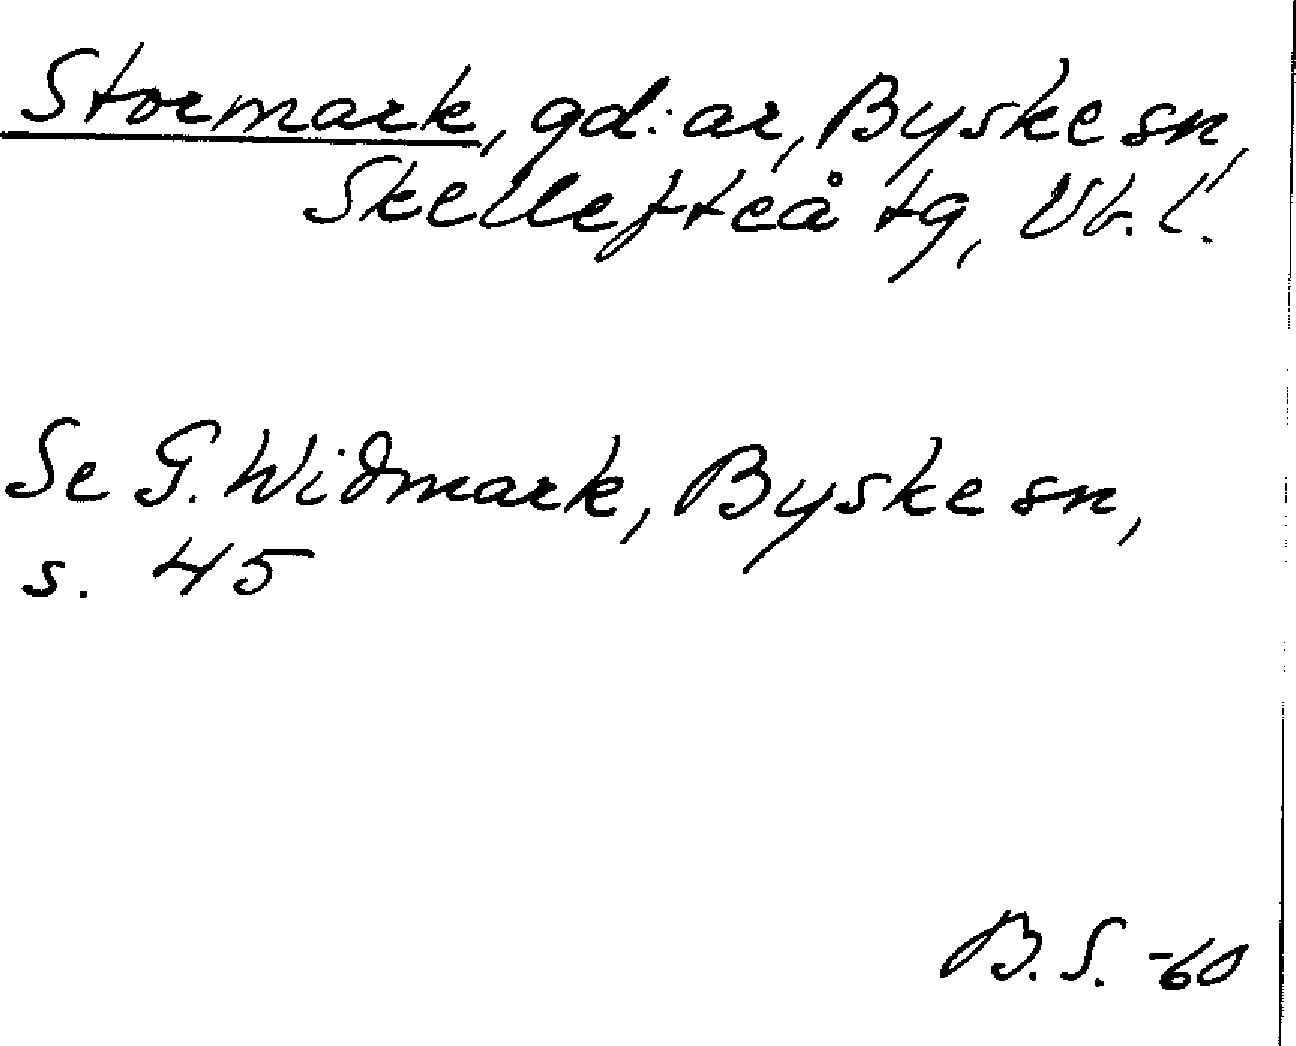 Stormark, gd:ar, Byske sn,
Skellefteå tg, Vb. l.
Se G. Widmark, Byske sn,
s. 45
B.S. -60